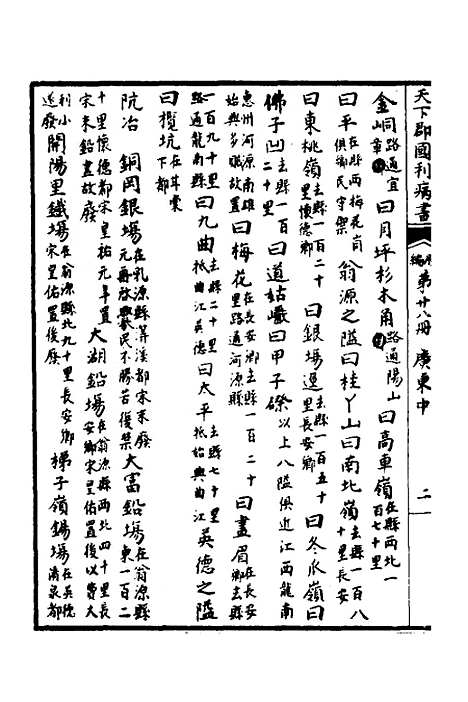 天下郡國利病書 原編第廿八冊 廣東中 二
金峒路通宜章曰月坪杉木角路通陽山曰高車嶺在縣西北一百七十里
曰平在縣西梅花峝俱鄉民守架翁源之隘曰桂丫山曰南北嶺去縣一百八十里長安
曰東桃嶺去縣一百二十里懷德鄉曰銀場逕去縣一百五十里長安鄉曰冬瓜嶺曰
佛子凹去縣一百二十里曰道姑巗曰甲子磜以上八隘俱近江西龍南
惠州河源南雄始興多賊故置曰梅花在長安鄉去縣一百二十里路通河源縣曰畫眉在長安鄉去縣
一百九十里路通龍南縣曰九曲去縣二十里抵曲江英德曰太平去縣七十里抵始興曲江英德之隘
曰欖坑在茸棠下都
阬冶 銅罔銀場在乳源縣筭溪都宋末廢元再啓衆民不勝苦復禁大富鉛場在翁源縣東一百二
十里懷德都宋皇祐元年置宋末鉛盡故廢大湖鉛場在翁源縣西北四十里長安鄉宋皇佑置後以費大
利小遂廢開陽里鐵場在翁源縣北九十里長安鄉宋皇佑置後廢梯子嶺錫場在英德清泉都